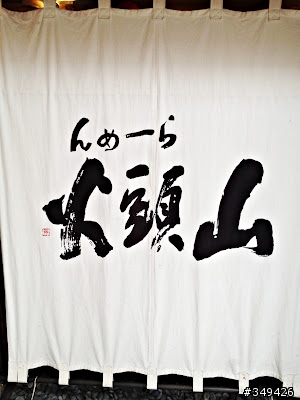 らーめん
山頭火
#349426